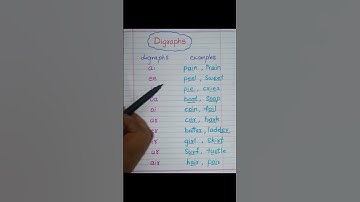 Digraphs
digraphs examples
ai pain, Rain
ee peel, Sweet
pie, cries
oa boat, Soap
oi coin, foil
ar car, bark
er butter, ladder
ir girl, Shirt
ur Surf, turtle
air hair, pair